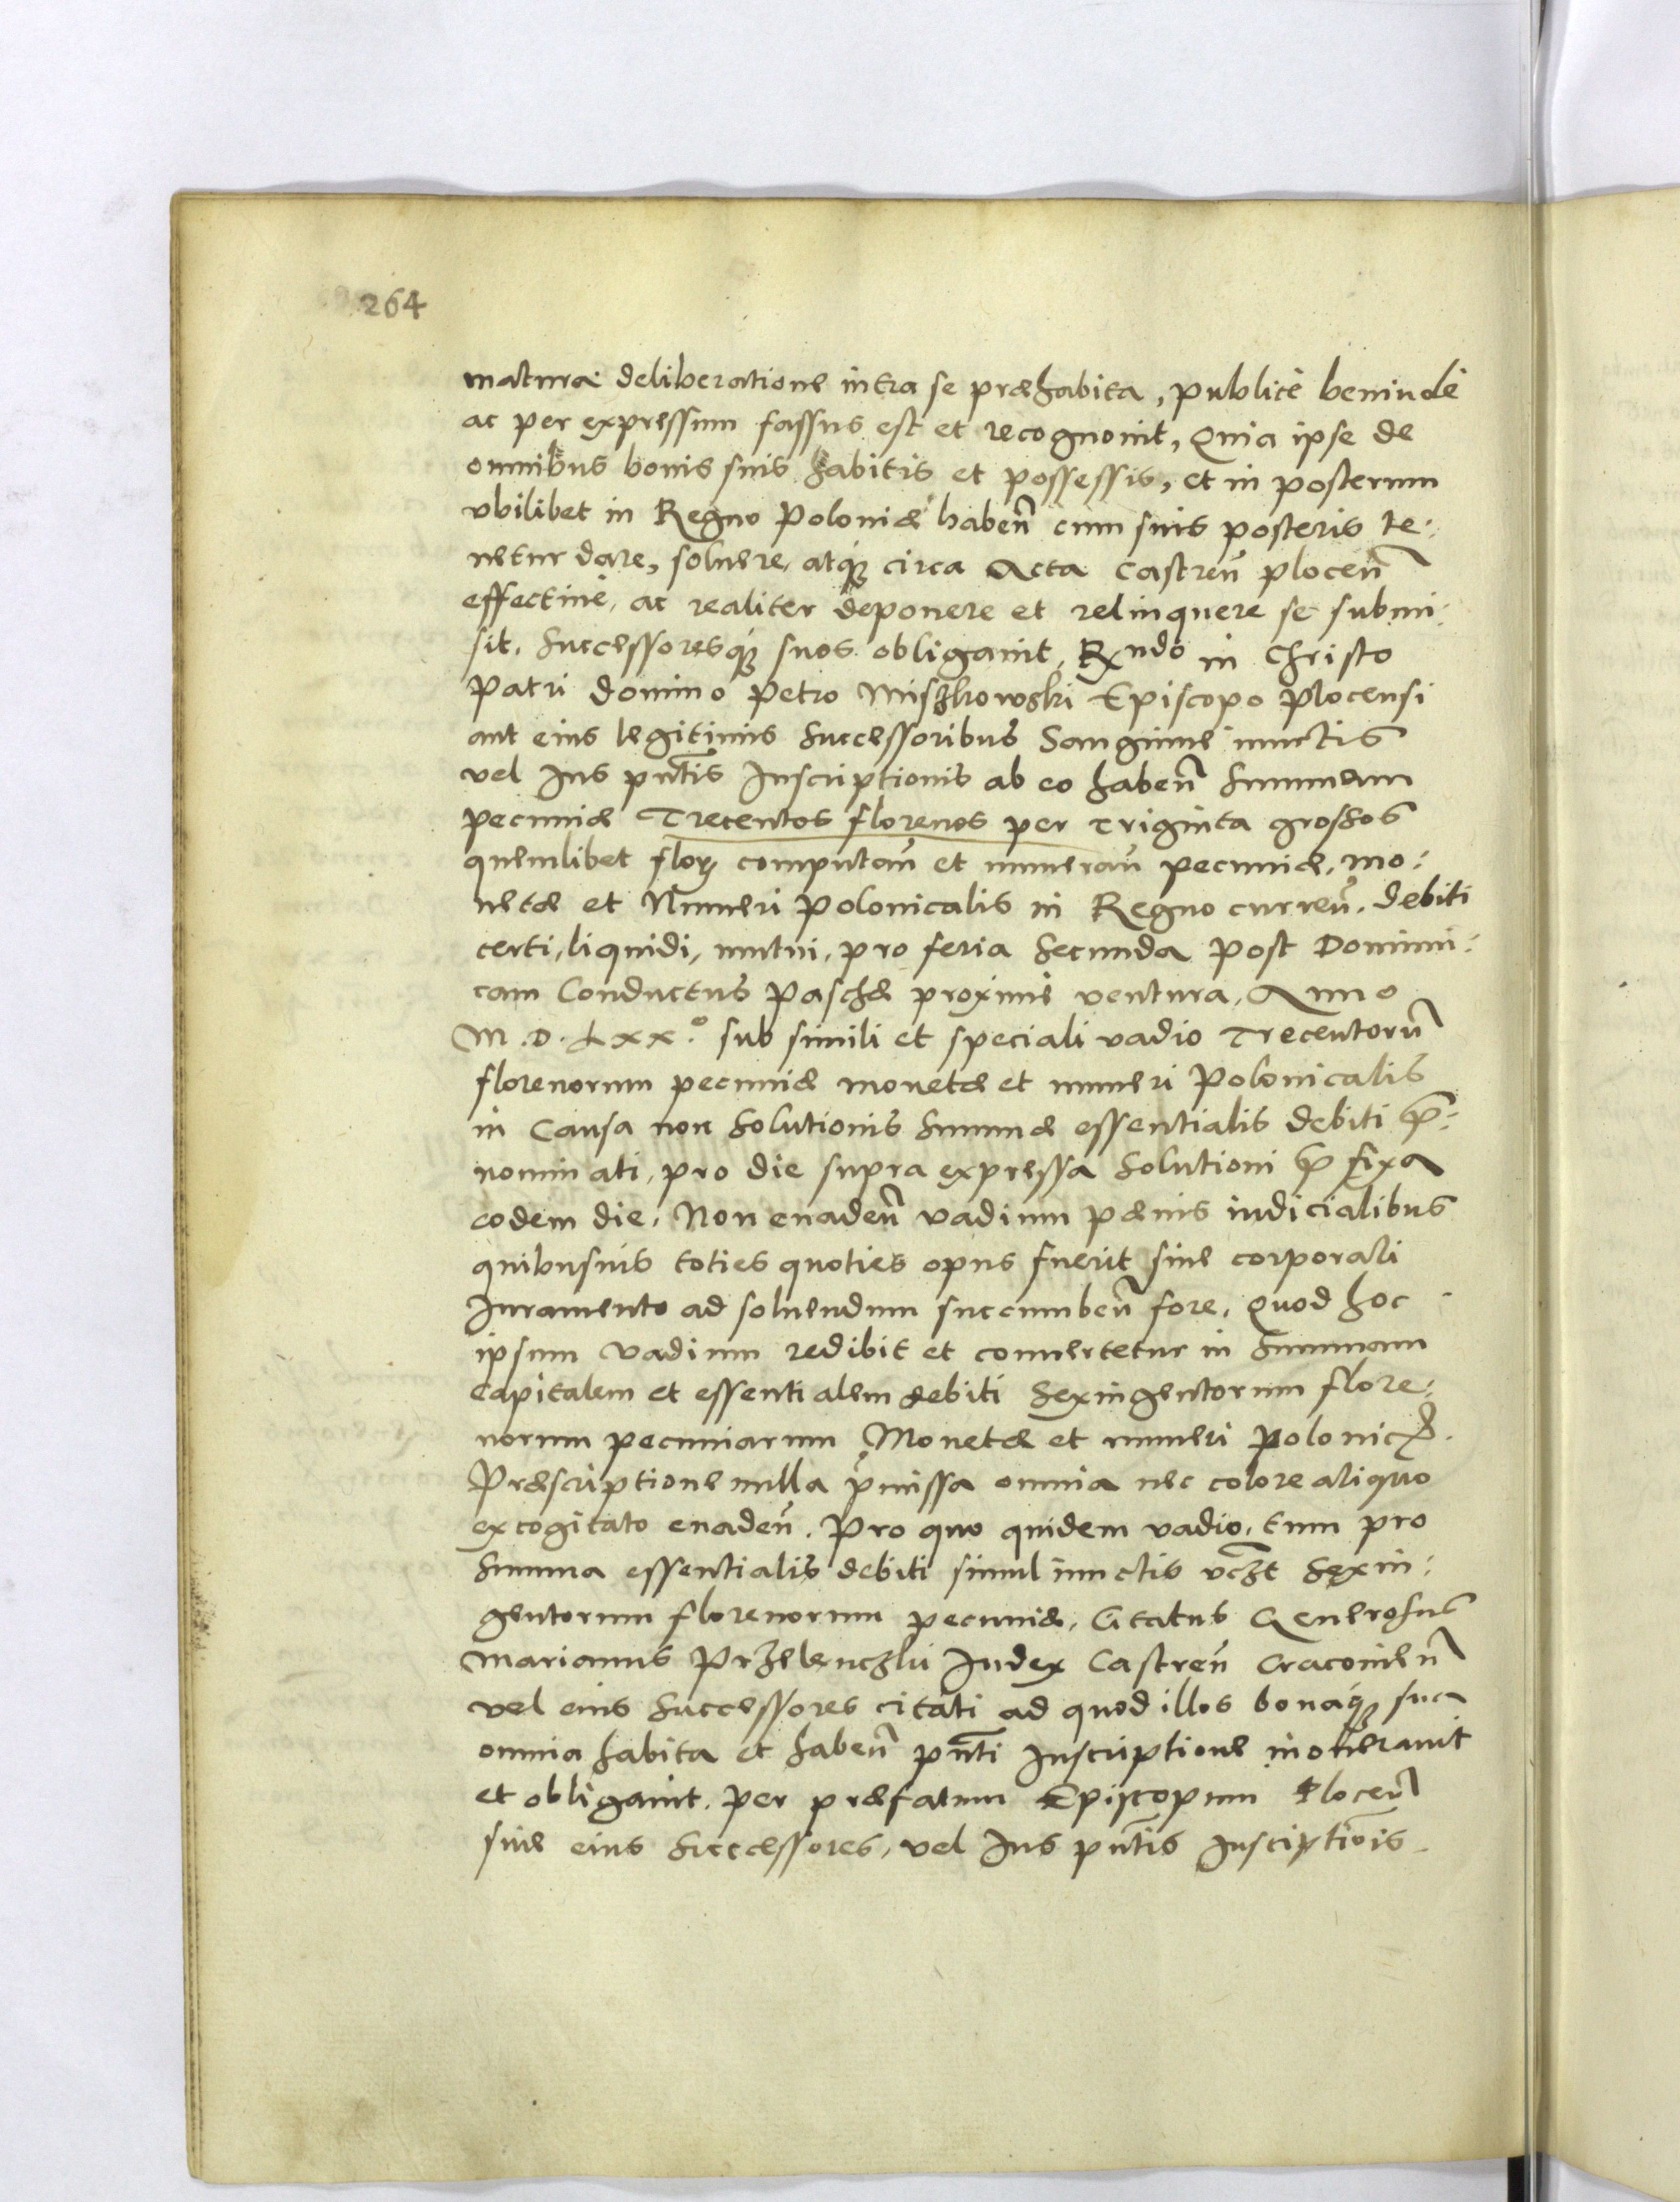 264
matura deliberatione intra se præhabita, publicè beniuolè
ac per expressum fassus est et recognouit, Quia ipse de
omnibus bonis suis habitis et possessis, et in posterum
vbilibet in Regno Poloniæ habeñ cum suis posteris te:
netur dare, soluere, atq́ʒ circa Acta Castreñ ploceñ
effectiuè, ac realiter deponere et relinquere se submi:
sit. Successoresq́ʒ suos obligauit, Rndo in Christo
Patri domino Petro Miszkowski Episcopo Plocensi
aut eius legitimis Successoribus Sanguine iunctis
vel Ius pñtis Inscriptionis ab eo habeñ Summam
pecuniæ Trecentos florenos per triginta grossos
quemlibet flor computañ et numerañ pecuniæ, mo:
netæ et Numeri Polonicalis in Regno curreñ. debiti
certi, liquidi, mutui, pro feria Secunda post Domini:
cam Conductus Paschæ proximè ventura, Anno
M.D.LXX.º sub simili et speciali vadio Trecentorũ
florenorum pecuniæ monetæ et numeri Polonicalis
in Causa non Solutionis Summæ essentialis debiti p̃:
nominati, pro die supra expressa Solutioni p̃fixa
eodem die, Non euadeñ vadium pænis iudicialibus
quibusuis toties quoties opus fuerit siue corporali
Iuramento ad soluendum succumbeñ fore, Quod hoc
ipsum vadium redibit et conuertetur in Summam
capitalem et essentialem debiti Sexingentorum flore:
norum pecuniarum Monetæ et numeri Polonic.
Præscriptione nulla p̃missa omnia nec colore aliquo
excogitato euadeñ. Pro quo quidem vadio, tum pro
Summa essentialis debiti simul iunctis vczt Sexin:
gentorum florenorum pecuniæ, Citatus Generosus
Marianus Przelenczki Iudex Castreñ Cracouieñ
vel eius Successores citati ad quod illos bonaq́ʒ sua
omnia habita et habeñ pñti Inscriptione inonerauit
et obligauit. Per præfatum Episcopum Ploceñ
siue eius Successores, vel Ius pñtis Inscriptiõis